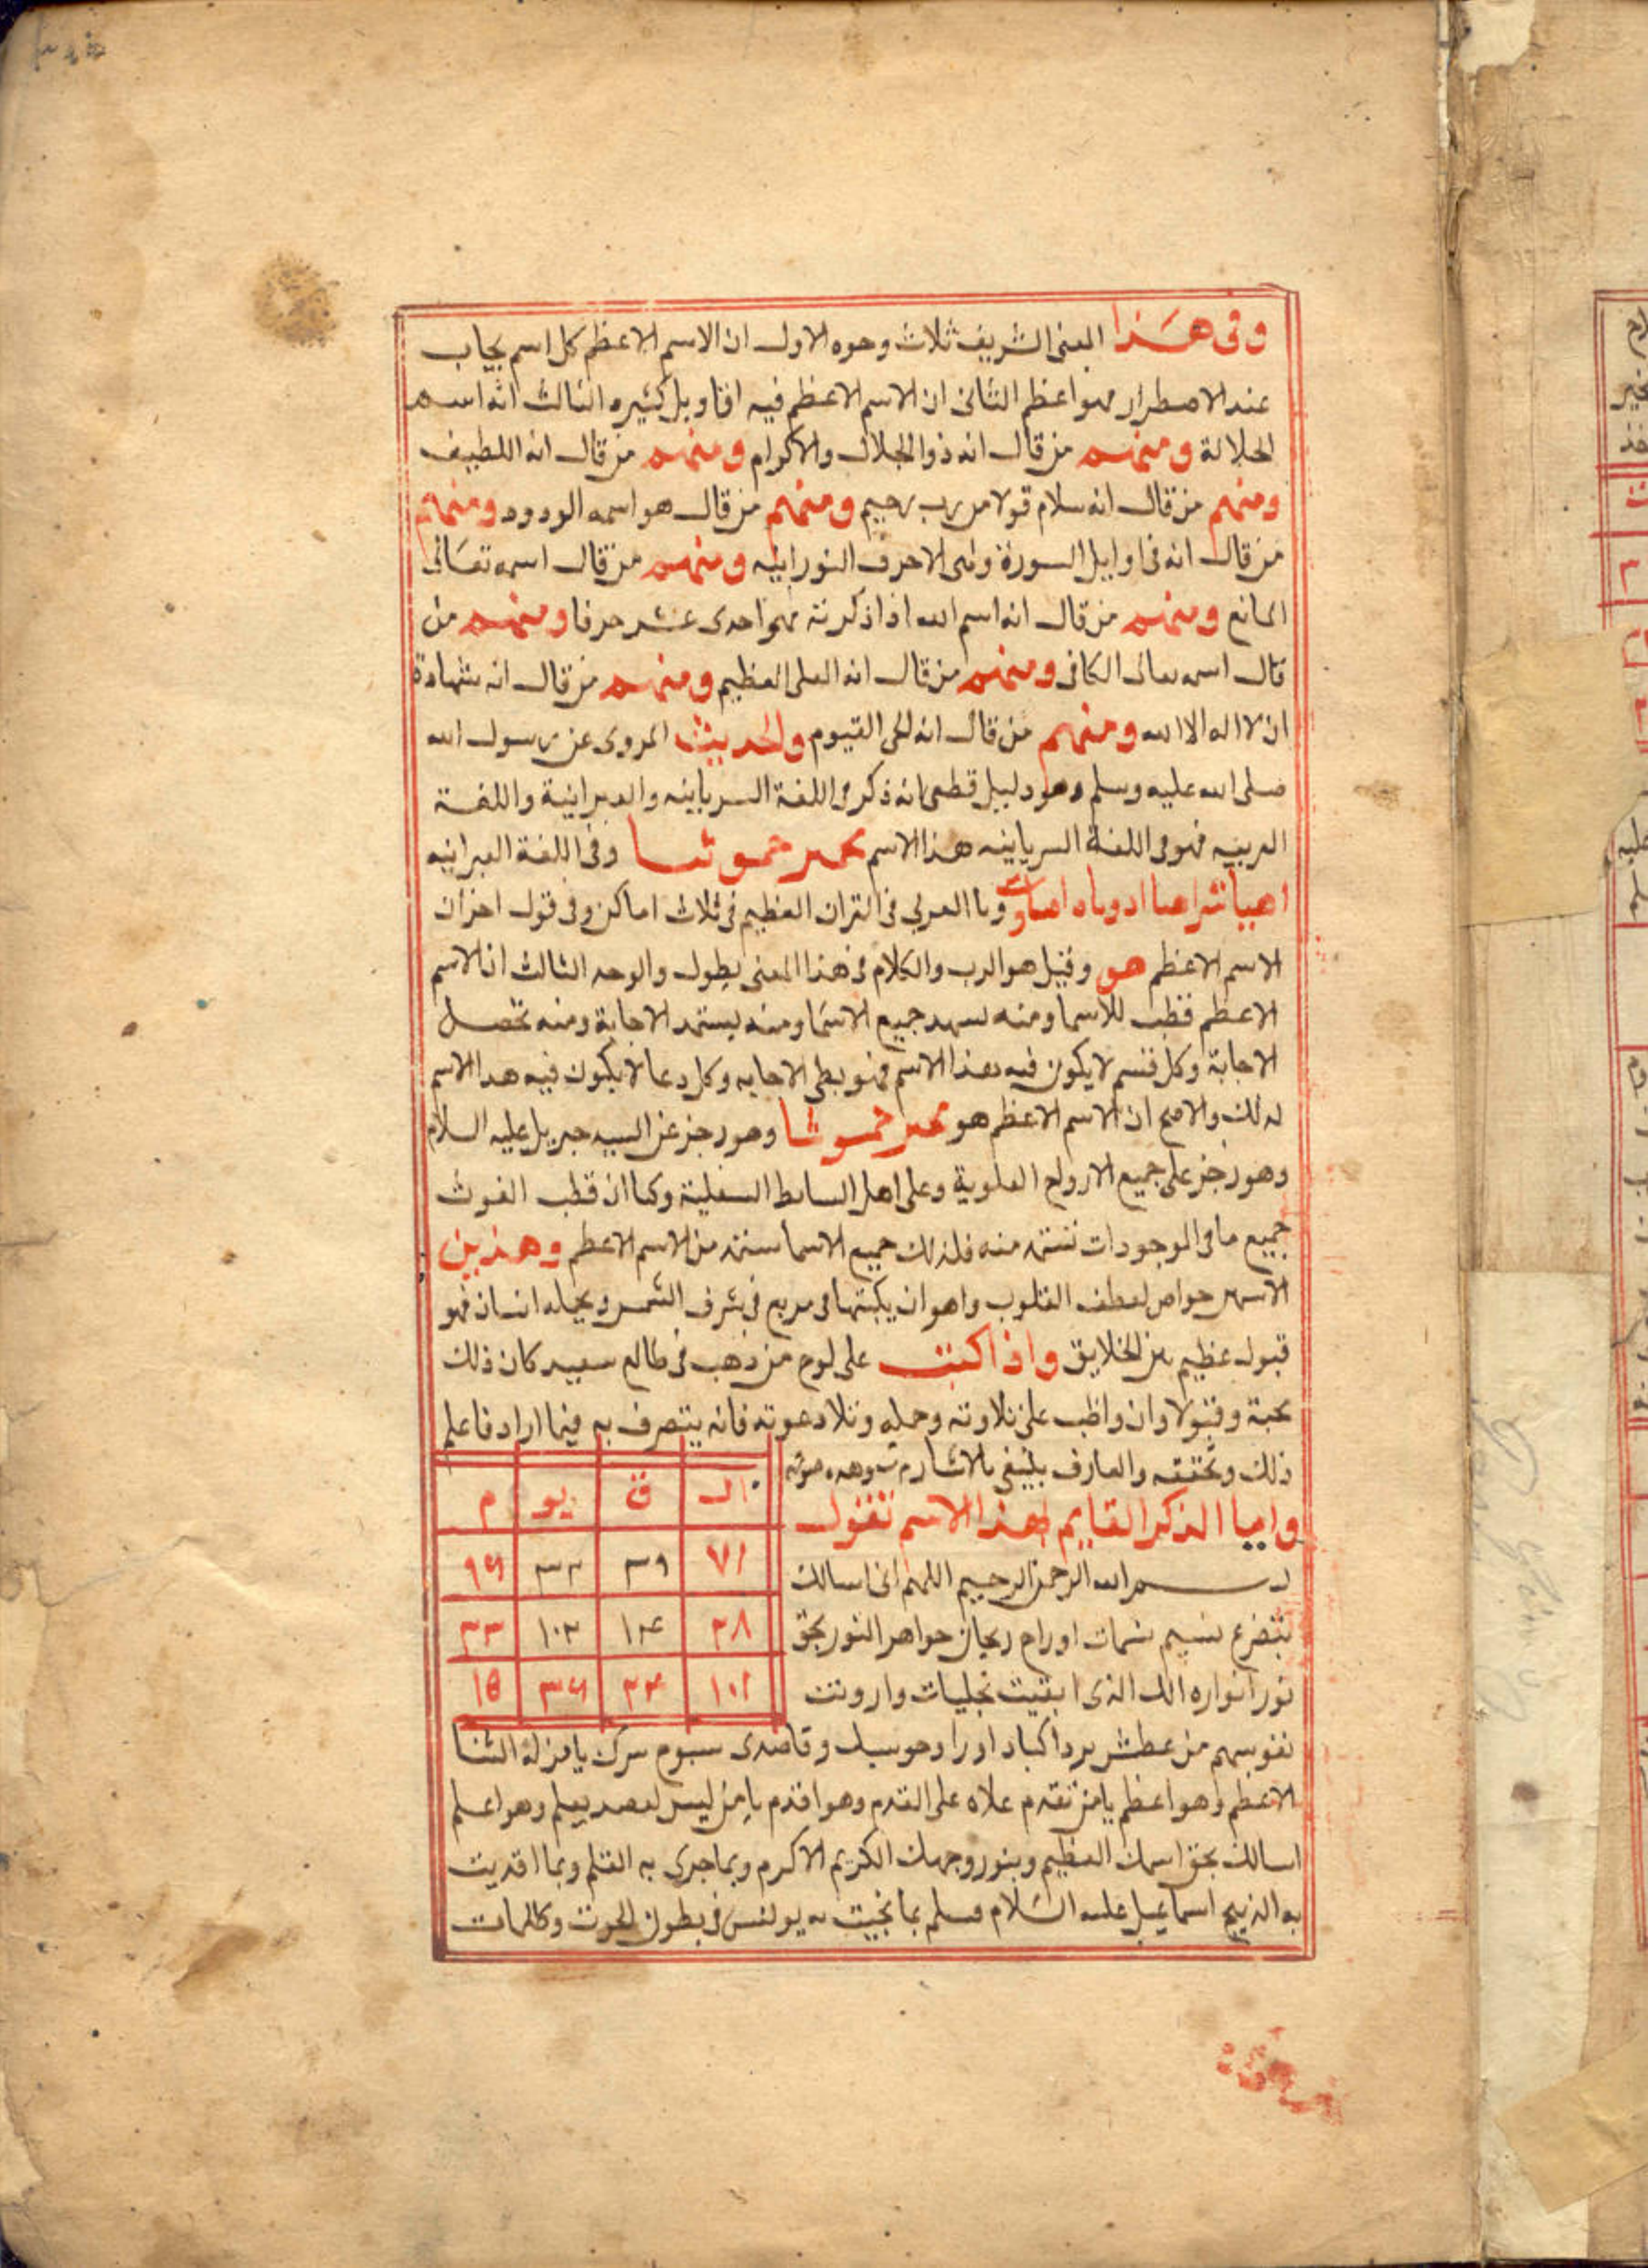 وفى هذا المعنى الشريف ثلاث وجوه الاول ان الاسم الاعظم كل اسم يجاب
عند الاضطرار فهو اعظم الثانى ان الاسم الاعظم فيه اقاويل كثيره الثالث انه اسم
الجلالة ومنهم من قال انه ذو الجلال والاكرام ومنهم من قال انه اللطيف
ومنهم من قال انه سلام قولا من رب رحيم ومنهم من قال هو اسمه الودود ومنهم
من قال انه فى اوايل السورة وهى الاحرف النورانيه ومنهم من قال اسمه تعالى
المانع ومنهم من قال انه اسم الله اذا ذكرته فهو احدى عشر حرفا ومنهم من
قال اسمه تعالى الكافى ومنهم من قال انه العلى العظيم ومنهم من قال انه شهادة
ان لا اله الا الله ومنهم من قال انه الحى القيوم والحديث المروى عن رسول الله
صلى الله عليه وسلم وهو دليل قطعى انه ذكر فى اللغة السريانيه والعبرانية واللغة
العربيه فهو فى اللغة السريانيه هذا الاسم وفى اللغة العبرانيه
اهيا شراهيا ادوناى العربي فى القران العظيم فى ثلاث اماكن وفى قول اخر ان
الاسم الاعظم هو وقيل هو الرب والكلام فى هذا المعنى يطول والوجه الثالث ان الاسم
الاعظم قطب للاسما ومنه جميع الاسما ومنه يستمد الاجابة ومنه تحصل
الاجابة وكل قسم لا يكون فيه هذا الاسم فهو بطى الاجابه وكل دعا لا يكون فيه هذا الاسم
كذلك والاصح ان الاسم الاعظم هو وهو رجز عن جبريل عليه السلام
وهو رجز على جميع الارواح العلوية وعلى اهل السفلية وكما ان قطب الغوث
جميع ما فى الموجودات تستمد منه فلذلك جميع الاسما تستمد من الاسم الاعظم وهذين
الاسمين خواص لعطف القلوب وهو ان يكتبها فى مربع فى شرف الشمس ويحمله انسان فهو
قبول عظيم بين الخلايق واذا كتبت على لوح من ذهب فى طالع سعيد كان ذلك
محبة وقبولا وان واظب على تلاوته وحمله وتلا دعوته فانه يتصرف به فيما اراد فاعلم
ذلك وتحققه والعارف يكتفى بالاشارة وهذه صورته
ال ق يو م
٧١ ٣٩
٣٨ ١٠٣
١٠١ ٣٤ ٣٦ ١٥
واما الذكر القايم لهذا الاسم تقول
بسم الله الرحمن الرحيم اللهم انى اسالك
بتضوع نسيم نسمات ارواح ريحان جواهر النور بحق
نور انواره الذى ابقيت تجليات وارويت
نفوسهم من عطش برد اكباد وقاصدى سرك يا من له الثنا
الاعظم وهو اعظم يا من تقدم علاه على القدم وهو اقدم يا من ليس يعلم وهو اعلم
اسالك بحق اسمك العظيم وبنور وجهك الكريم الاكرم وبما جرى به القلم وبما افديت
به الذبيح اسماعيل عليه السلام بما نجيت به يونس فى بطون الحوت وكلمات